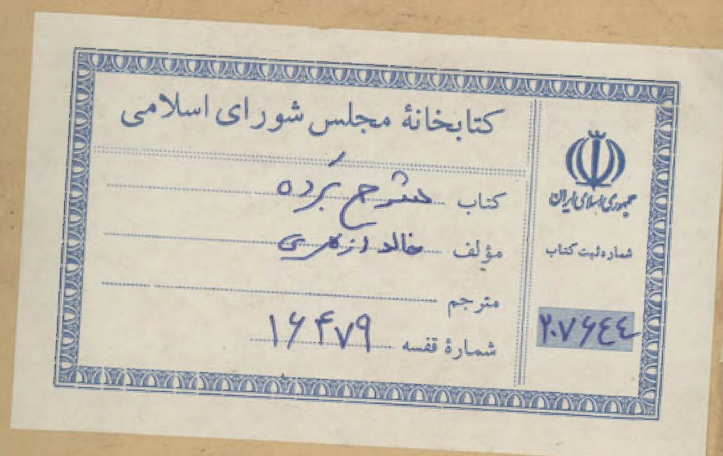 کتابخانهٔ مجلس شورای اسلامی
کتاب شرح بُرده
مؤلف خالد ازهری
مترجم
شمارهٔ قفسه ۱۶۴۷۹
جمهوری اسلامی ایران
شماره ثبت کتاب
۲۰۷۶۴۴